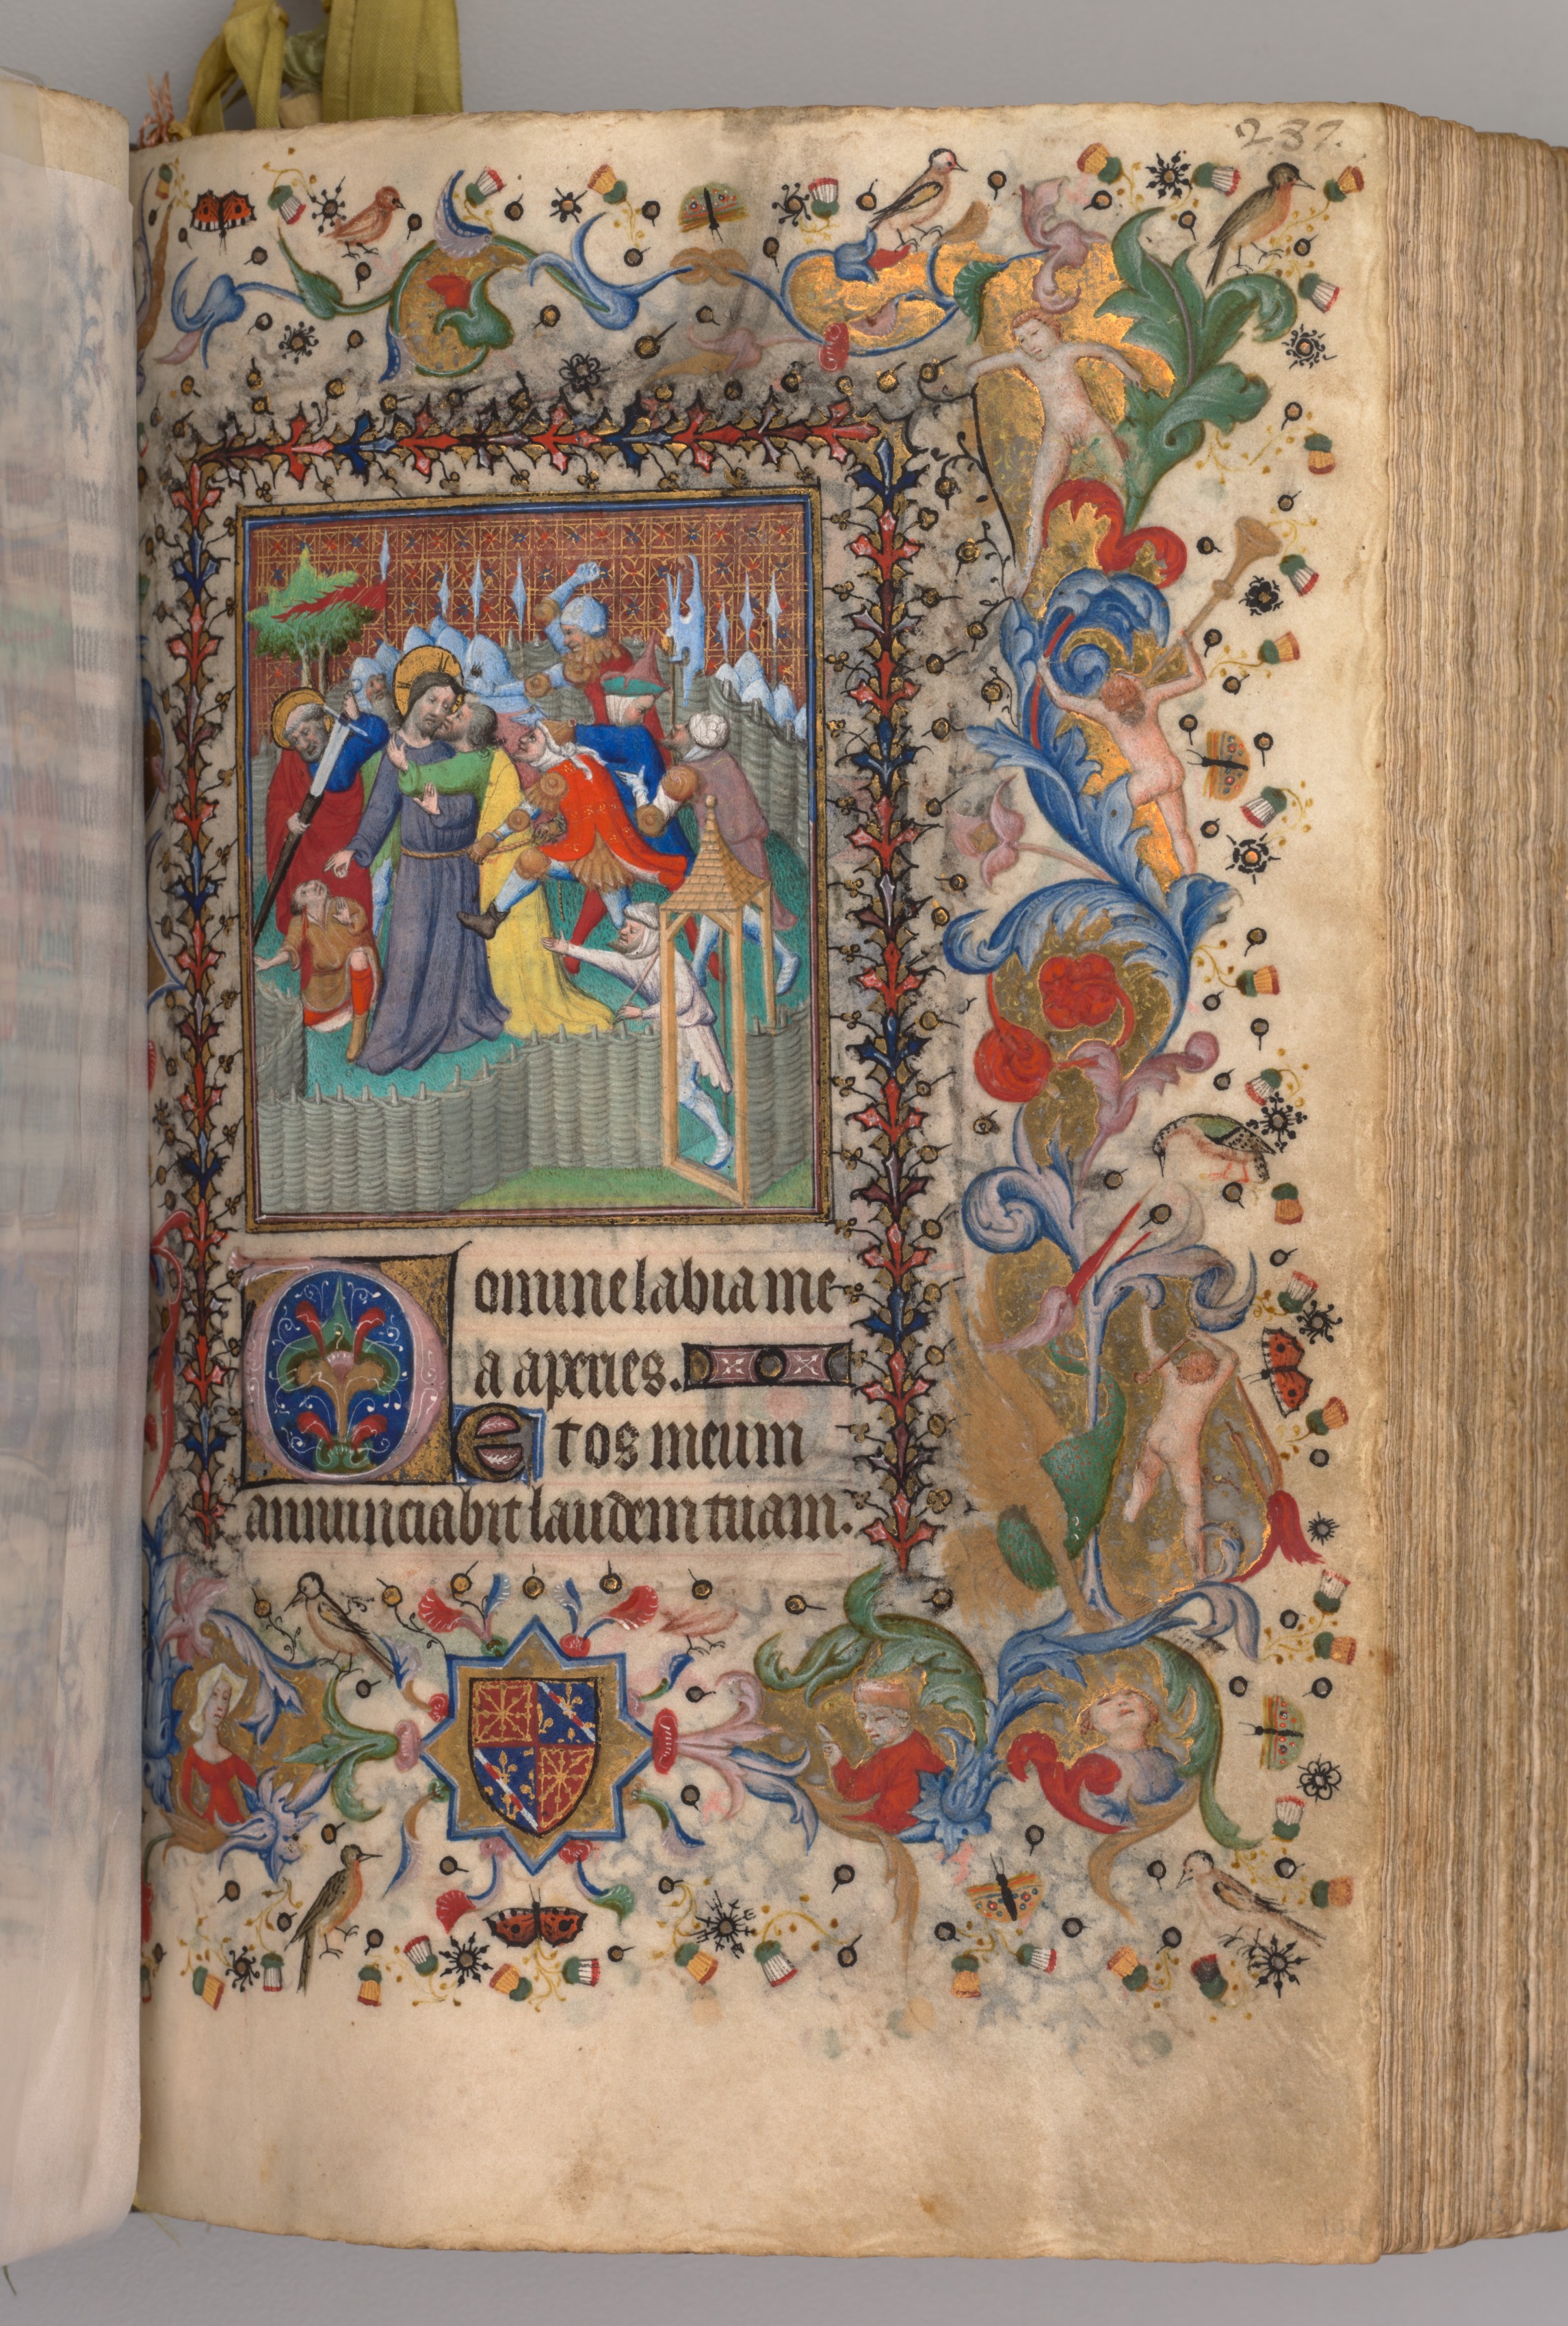 237.
Domine labia me
a aperies.
Et os meum
annunciabit laudem tuam.